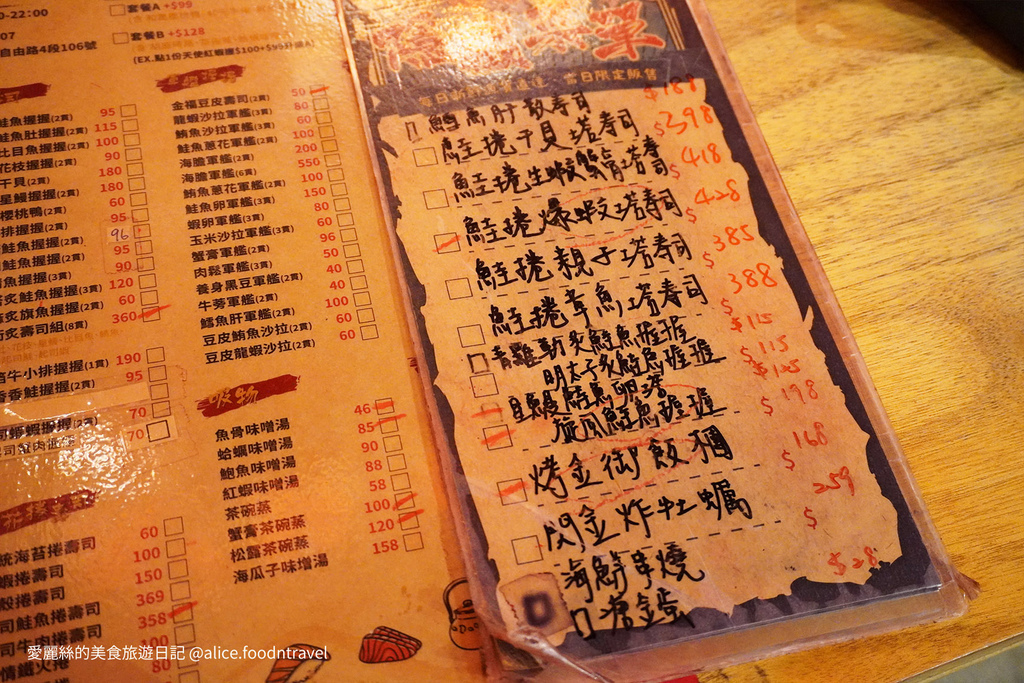 0-22:00
07
自由路4段106號
套餐A +$99
套餐B +$128
(EX.點1份天使紅蝦握$100+$99升級A)
鮭魚握握(2貫) 95
鮭魚肚握握(2貫) 115
比目魚握握(2貫) 100
花枝握握(2貫) 90
干貝(2貫) 180
星鰻握握(2貫) 180
櫻桃鴨(2貫) 60
排握握(2貫) 95
鮭魚握握(2貫) 96
鮭魚握握(2貫) 95
魚握握(3貫) 90
炙鮭魚握握(3貫) 120
炙旗魚握握(2貫) 60
炙壽司組(8貫) 360
牛小排握握(1貫) 190
香鮭握握(2貫) 95
蝦握握(2貫) 70
70
統海苔捲壽司 60
蝦捲壽司 100
捲壽司 150
司鮭魚捲壽司 369
司牛肉捲壽司 358
情鐵火捲 100
80
金福豆皮壽司(2貫) 50
龍蝦沙拉軍艦(3貫) 80
鮪魚沙拉軍艦(3貫) 60
鮭魚蔥花軍艦(2貫) 100
海膽軍艦(2貫) 200
海膽軍艦(6貫) 550
鮪魚蔥花軍艦(2貫) 100
鮭魚卵軍艦(3貫) 150
蝦卵軍艦(3貫) 80
玉米沙拉軍艦(3貫) 60
蟹膏軍艦(2貫) 96
肉鬆軍艦(3貫) 50
養身黑豆軍艦(2貫) 40
牛蒡軍艦(2貫) 40
鱈魚肝軍艦(2貫) 100
豆皮鮪魚沙拉(2貫) 60
豆皮龍蝦沙拉(2貫) 60
吸物
魚骨味噌湯 46
蛤蠣味噌湯 85
鮑魚味噌湯 90
紅蝦味噌湯 88
茶碗蒸 58
蟹膏茶碗蒸 100
松露茶碗蒸 120
海瓜子味噌湯 158
單
每日新鮮漁貨直送 當日限定販售
鱈魚肝散壽司 $188
鮭捲干貝塔壽司 $398
鮭捲生蝦蟹膏塔壽司 $418
鮭捲爆蝦塔壽司 $428
鮭捲親子塔壽司 $385
鮭捲章魚塔壽司 $388
炙鮭魚握握 $115
明太子炙鮭魚握握 $115
鮭魚卵塔 $125
旋風鮭魚握握 $198
烤金御飯糰 $168
閃金炸牡蠣 $259
海鮮串燒 $
溏金蛋 $28
愛麗絲的美食旅遊日記 @alice.foodntravel